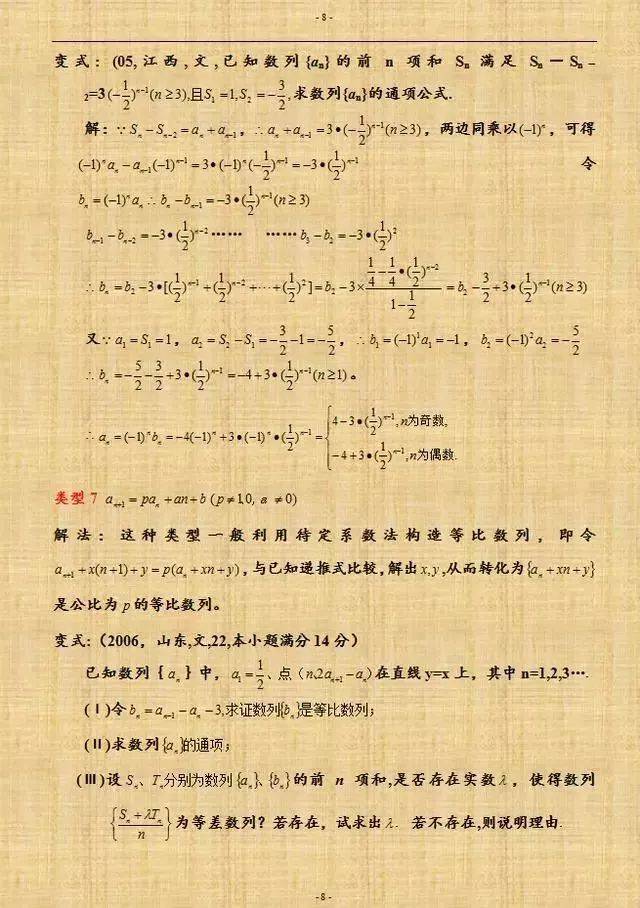 - 8 -
变式:(05,江西,文,已知数列{an}的前 n 项和 Sn 满足 Sn－Sn－
₂=3(-1/2)^{n-1}(n≥3),且S₁=1,S₂=-3/2,求数列{an}的通项公式.
解：∵S_n-S_{n-2}=a_n+a_{n-1}，∴a_n+a_{n-1}=3•(-1/2)^{n-1}(n≥3)，两边同乘以(-1)^n，可得
(-1)^n a_n-a_{n-1}(-1)^{n-1}=3•(-1)^n(-1/2)^{n-1}=-3•(1/2)^{n-1} 令
b_n=(-1)^n a_n∴b_n-b_{n-1}=-3•(1/2)^{n-1}(n≥3)
b_{n-1}-b_{n-2}=-3•(1/2)^{n-2}…… ……b₃-b₂=-3•(1/2)^2
∴b_n=b₂-3•[(1/2)^{n-1}+(1/2)^{n-2}+⋯+(1/2)^2]=b₂-3×(1/4-1/4•(1/2)^{n-2})/(1-1/2)=b₂-3/2+3•(1/2)^{n-1}(n≥3)
又∵a₁=S₁=1，a₂=S₂-S₁=-3/2-1=-5/2，∴b₁=(-1)^1a₁=-1，b₂=(-1)^2a₂=-5/2
∴b_n=-5/2-3/2+3•(1/2)^{n-1}=-4+3•(1/2)^{n-1}(n≥1)。
∴a_n=(-1)^n b_n=-4(-1)^n+3•(-1)^n•(1/2)^{n-1}={4-3•(1/2)^{n-1},n为奇数,
-4+3•(1/2)^{n-1},n为偶数.
类型7 a_{n+1}=pa_n+an+b (p≠1,0, a≠0)
解法：这种类型一般利用待定系数法构造等比数列，即令
a_{n+1}+x(n+1)+y=p(a_n+xn+y)，与已知递推式比较，解出x,y,从而转化为{a_n+xn+y}
是公比为p的等比数列。
变式:（2006，山东,文,22,本小题满分14分）
已知数列｛a_n｝中，a₁=1/2、点（n,2a_{n+1}-a_n）在直线y=x上，其中n=1,2,3….
(Ⅰ)令b_n=a_{n-1}-a_n-3,求证数列{b_n}是等比数列；
(Ⅱ)求数列{a_n}的通项；
(Ⅲ)设S_n、T_n分别为数列{a_n}、{b_n}的前 n 项和,是否存在实数λ，使得数列
{(S_n+λT_n)/n}为等差数列？若存在，试求出λ. 若不存在,则说明理由.
- 8 -